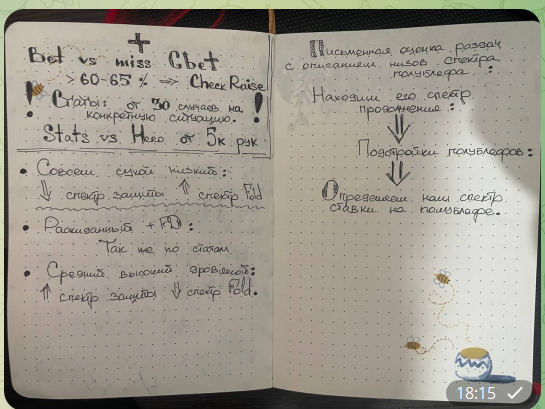 +
Bet vs miss Cbet
> 60-65 % => Check Raise
! Статы: от 30 случаев на !
конкретную ситуацию.
Stats vs Hero от 5к рук
• Совсем сухой низкий:
⇓ спектр защиты ⇑ спектр Fold
• Раскиданный + FD:
Так же по статам
• Средний высокий дровяной:
⇑ спектр защиты ⇓ спектр Fold.
Письменная оценка раздач
с описанием низов спектра
полублефа :
Находим его спектр
продолжение :
⇓
Подстройки полублефов:
⇓
Определяем наш спектр
ставки на полублефе.
18:15 ✓